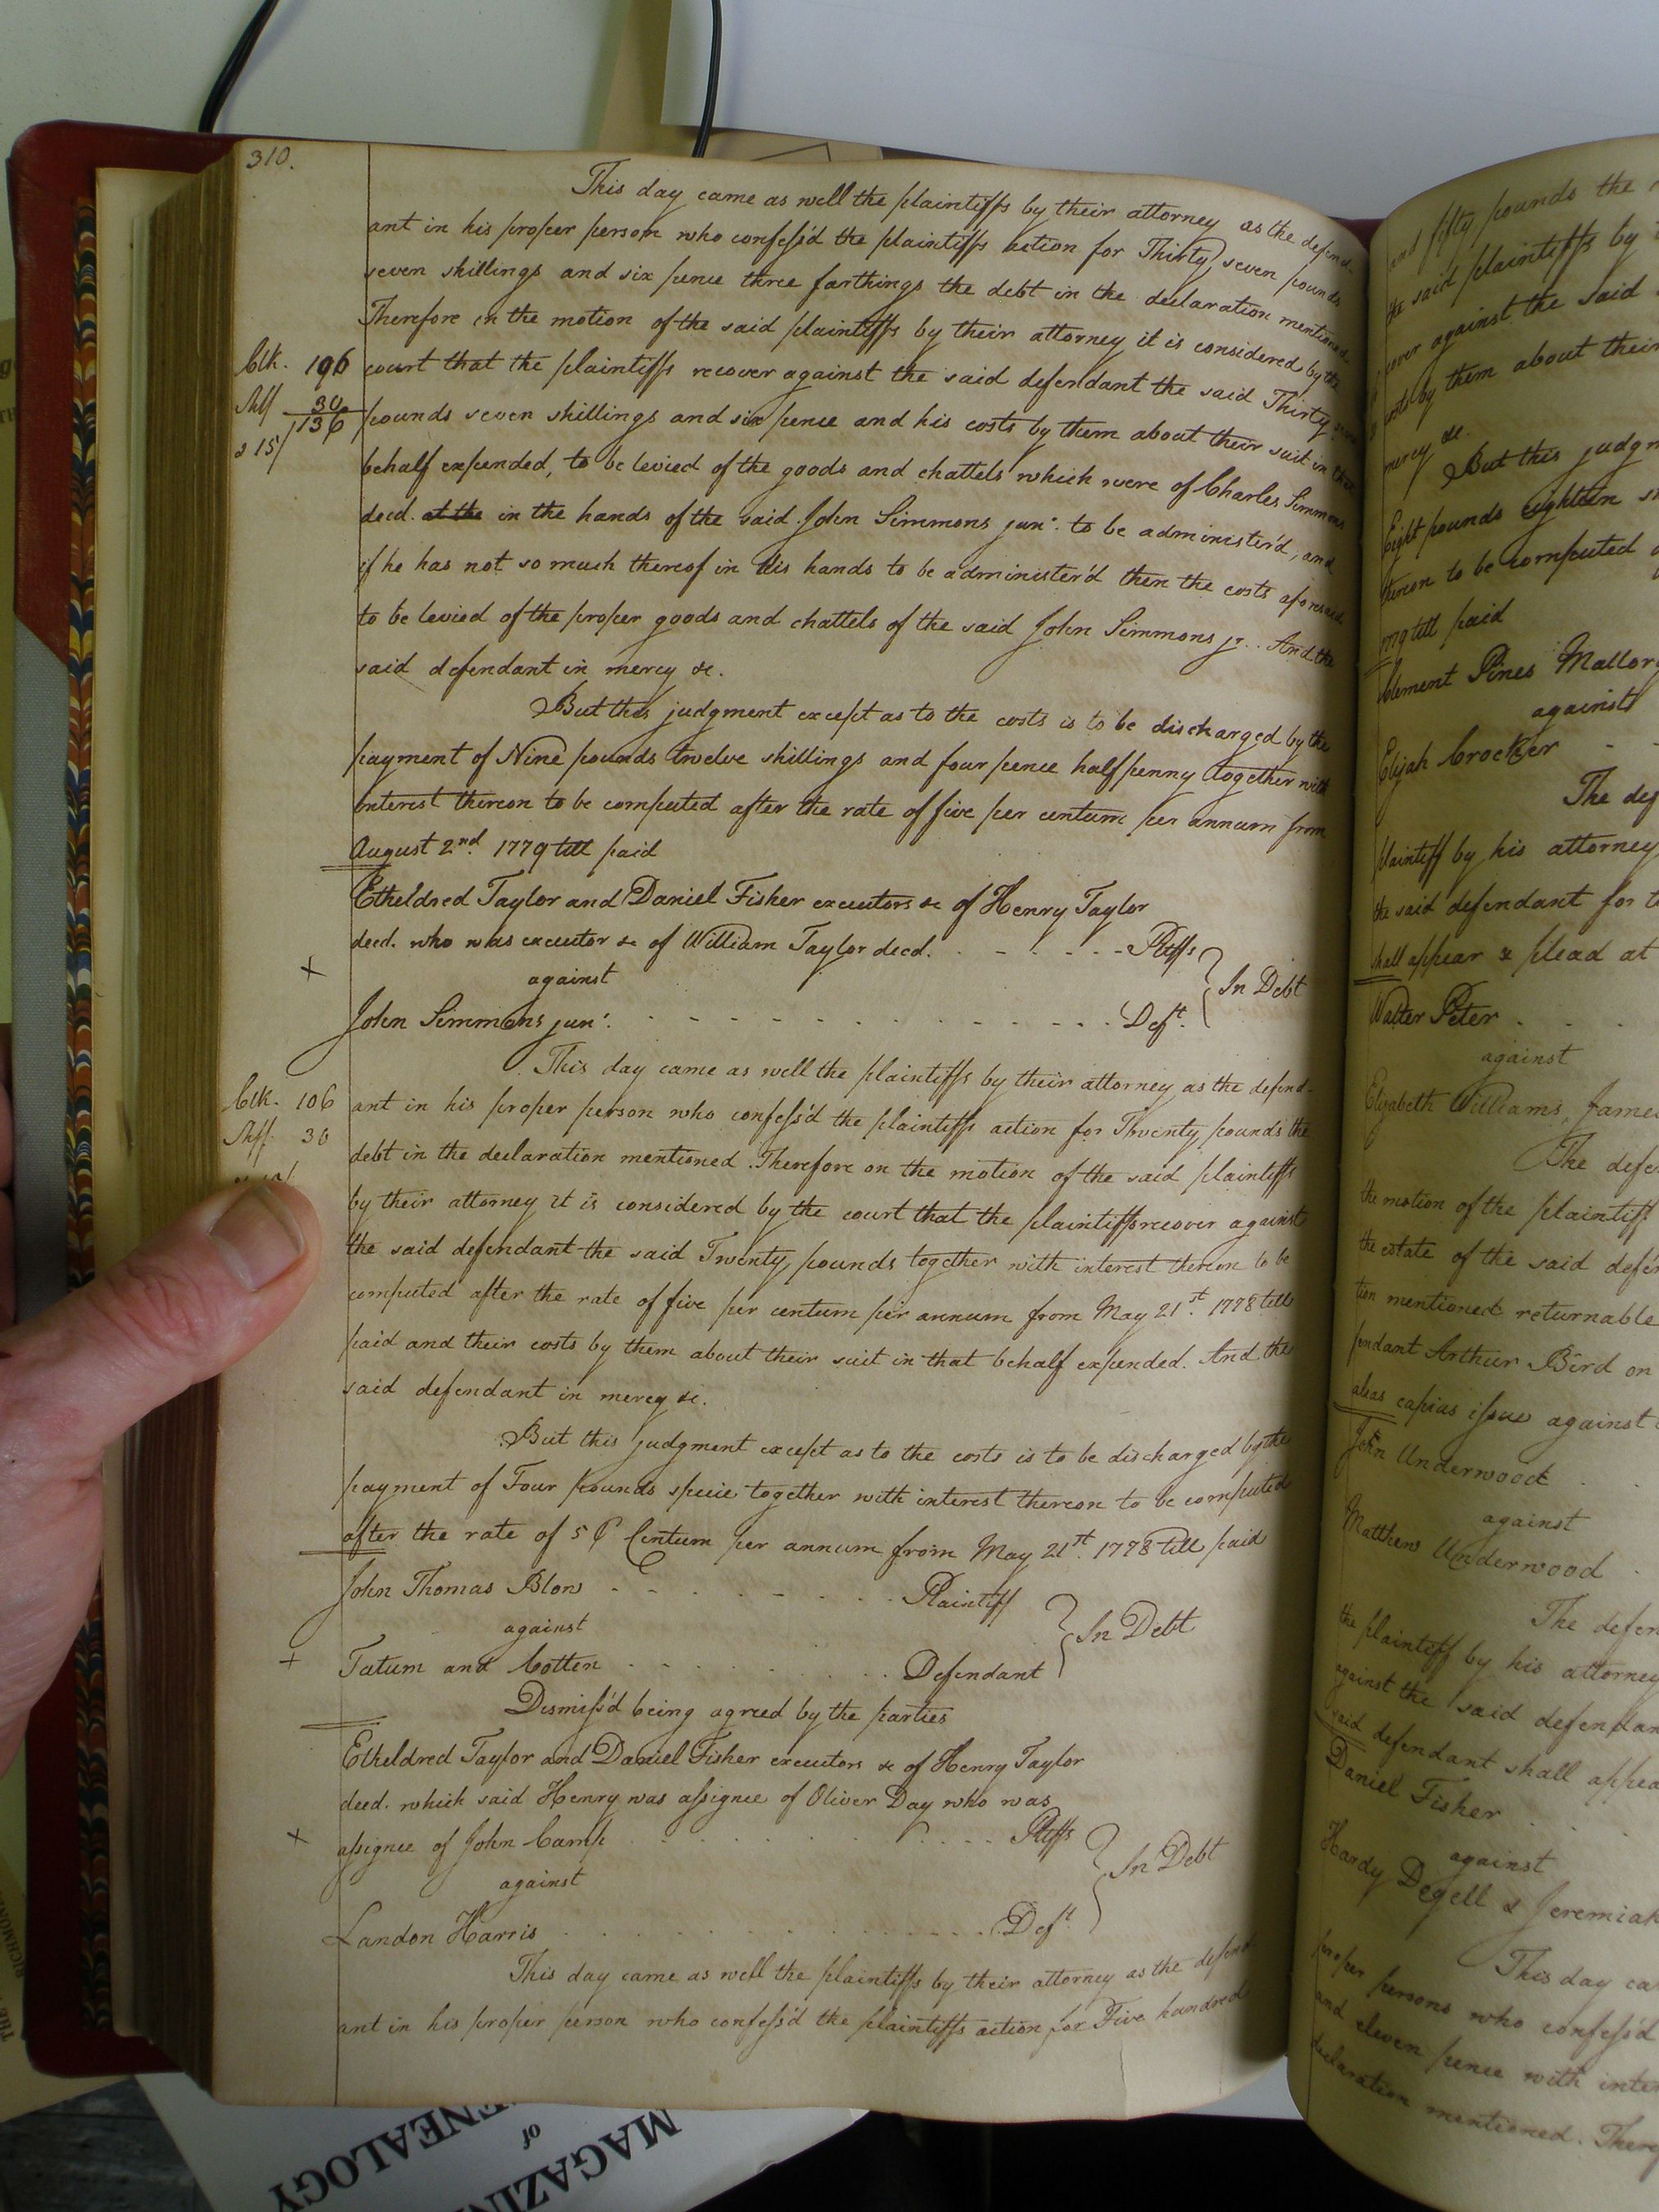 310.
This day came as well the plaintiffs by their attorney as the defend-
ant in his proper person who confess'd the plaintiffs action for Thirty seven pounds
seven shillings and six pence three farthings the debt in the declaration mentioned
Therefore on the motion of the said plaintiffs by their attorney it is considered by the
Clk. 106 court that the plaintiffs recover against the said defendant the said Thirty
Shff 30
136 pounds seven shillings and six pence and his costs by them about their suit in that
& 15/
behalf expended, to be levied of the goods and chattels which were of Charles Simmons
decd. at the in the hands of the said John Simmons junr. to be administer'd, and
if he has not so much thereof in his hands to be administer'd then the costs aforesaid
to be levied of the proper goods and chattels of the said John Simmons jr. And the
said defendant in mercy &c.
But this judgment except as to the costs is to be discharged by the
payment of Nine pounds twelve shillings and four pence half penny together with
interest thereon to be computed after the rate of five per centum per annum from
August 2nd. 1779 till paid
Etheldred Taylor and Daniel Fisher executors &c of Henry Taylor
decd. who was executor &c of William Taylor decd. Pltffs
+ against In Debt
John Simmons junr. Deft.
This day came as well the plaintiffs by their attorney as the defend-
Clk. 106 ant in his proper person who confess'd the plaintiffs action for Twenty pounds the
Shff. 30
debt in the declaration mentioned. Therefore on the motion of the said plaintiffs
by their attorney it is considered by the court that the plaintiffs recover against
the said defendant the said Twenty pounds together with interest thereon to be
computed after the rate of five per centum per annum from May 21st. 1778 till
paid and their costs by them about their suit in that behalf expended. And the
said defendant in mercy &c.
But this judgment except as to the costs is to be discharged by the
payment of Four pounds specie together with interest thereon to be computed
after the rate of 5 P Centum per annum from May 21st. 1778 till paid
John Thomas Blow Plaintiff
against In Debt
+ Tatum and Cotten Defendant
Dismiss'd being agreed by the parties
Etheldred Taylor and Daniel Fisher executors &c of Henry Taylor
decd. which said Henry was assignee of Oliver Day who was
+ assignee of John Camp Pltffs
against In Debt
Landon Harris Deft
This day came as well the plaintiffs by their attorney as the defend
ant in his proper person who confess'd the plaintiffs action for Five hundred
and fifty pounds the
the said plaintiffs by
against the said
by them about their
mercy &c.
But this judgm
Eight pounds Eighteen
thereon to be computed
till paid
Clement Pines Mallory
against
Elijah Crocker
The def
plaintiff by his attorney
the said defendant for
shall appear & plead at
Walter Peter
against
Elizabeth Williams, James
The defe
the motion of the plaintiff
the estate of the said defen
tion mentioned returnable
fendant Arthur Bird on
alias capias issue against
John Underwood
against
Matthew Underwood
The defen
the plaintiff by his attorney
against the said defendan
said defendant shall appea
Daniel Fisher
against
Hardy Degell & Jeremiah
This day ca
proper persons who confess'd
and eleven pence with inte
declaration mentioned. There
MAGAZIN
of
ENEALOGY
RICHMON